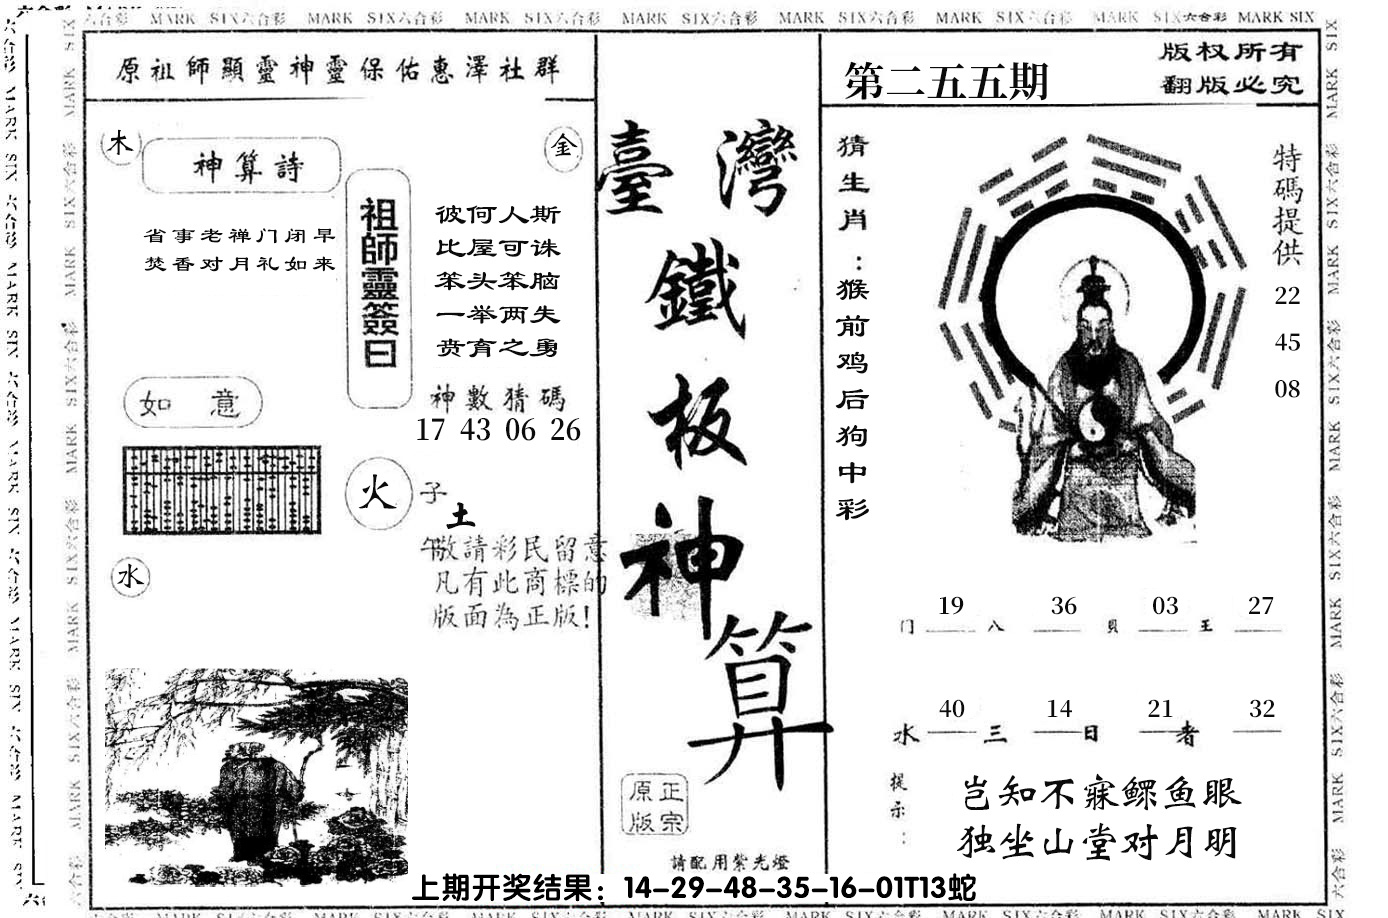 MARK SIX六合彩 MARK SIX六合彩 MARK SIX六合彩 MARK SIX六合彩 MARK SIX六合彩 MARK SIX六合彩 MARK SIX六合彩 MARK SIX
原祖師顯靈神靈保佑惠澤社群
木
金
神算詩
省事老禅门闭早
焚香对月礼如来
祖師靈簽曰
彼何人斯
比屋可诛
笨头笨脑
一举两失
贲育之勇
神數猜碼
17 43 06 26
如意
火
子
土
午
水
敬請彩民留意
凡有此商標的
版面為正版!
臺灣
鐵
板
神
算
正宗
原版
請配用紫光燈
第二五五期
版权所有
翻版必究
猜生肖:猴前鸡后狗中彩
特碼提供
22
45
08
19 36 03 27
门 八 貝 王
40 14 21 32
水 三 日 者
提示:
岂知不寐鳏鱼眼
独坐山堂对月明
上期开奖结果：14-29-48-35-16-01T13蛇